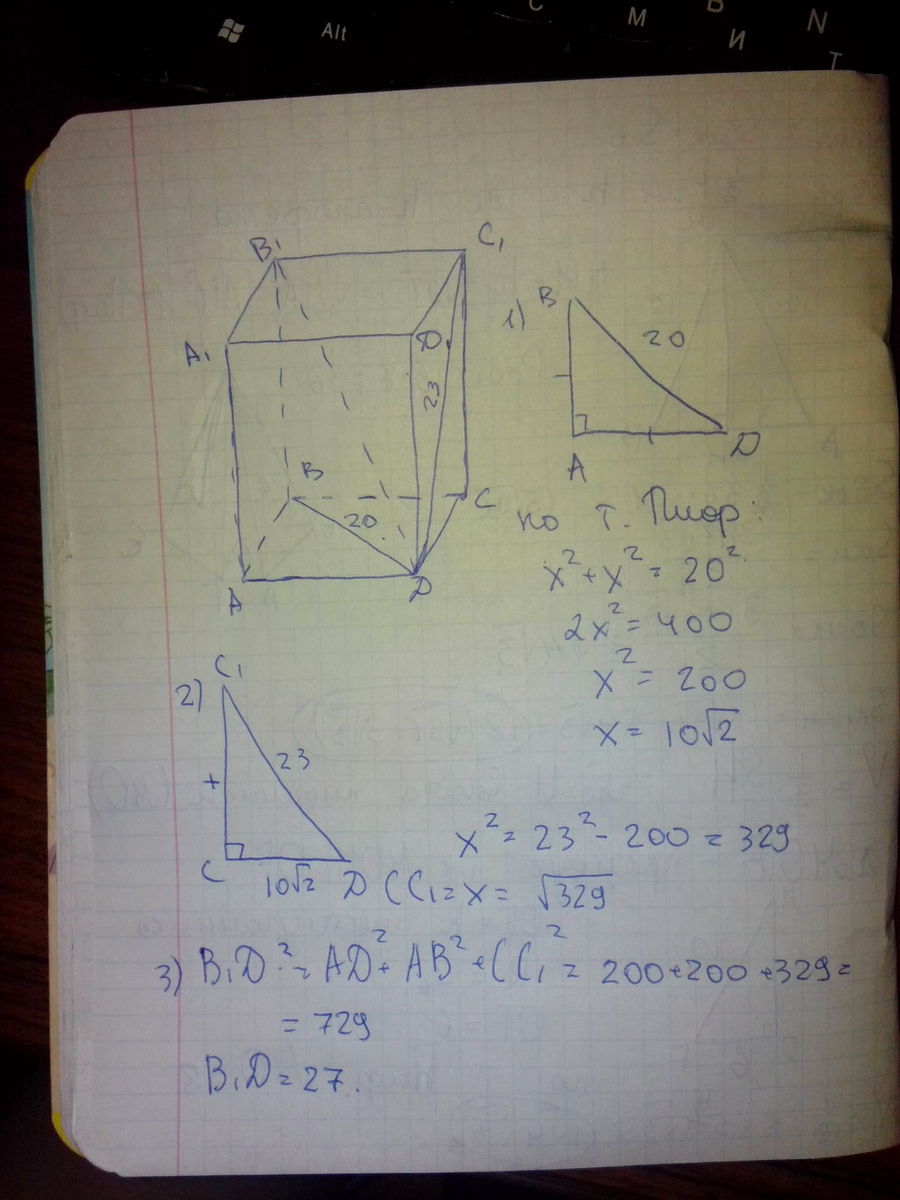 Alt
С
М
И
N
Т
B₁
C₁
A₁
D₁
23
B
C
20
A
D
1)
B
20
A
D
по т. Пиф:
x² + x² = 20²
2x² = 400
x² = 200
x = 10√2
2)
C₁
23
C
10√2
D
x² = 23² - 200 = 329
CC₁ = x = √329
3) B₁D² = AD² + AB² + CC₁² = 200 + 200 + 329 =
= 729
B₁D = 27.